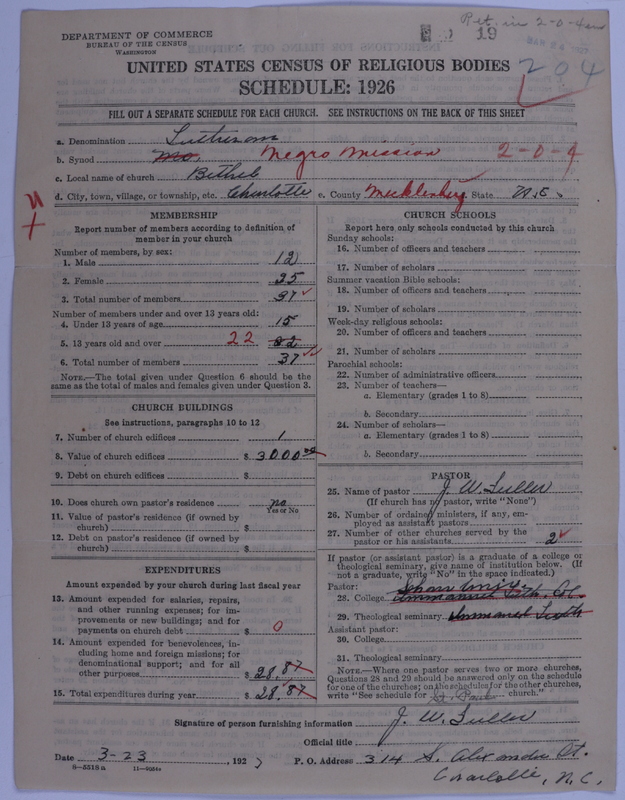 Ret. in 2-0-4
19
204
DEPARTMENT OF COMMERCE
BUREAU OF THE CENSUS
WASHINGTON
UNITED STATES CENSUS OF RELIGIOUS BODIES
SCHEDULE: 1926
FILL OUT A SEPARATE SCHEDULE FOR EACH CHURCH. SEE INSTRUCTIONS ON THE BACK OF THIS SHEET
a. Denomination Lutheran
b. Synod Mo. Negro Mission 2-0-4
c. Local name of church Bethel
d. City, town, village, or township, etc. Charlotte e. County Mecklenburg State N.C.
MEMBERSHIP
Report number of members according to definition of
member in your church
Number of members, by sex:
1. Male 12
2. Female 25
3. Total number of members 37
Number of members under and over 13 years old:
4. Under 13 years of age 15
5. 13 years old and over 22
6. Total number of members 37
NOTE.—The total given under Question 6 should be the
same as the total of males and females given under Question 3.
CHURCH BUILDINGS
See instructions, paragraphs 10 to 12
7. Number of church edifices 1
8. Value of church edifices $ 3000 00
9. Debt on church edifices $
10. Does church own pastor's residence no
Yes or No
11. Value of pastor's residence (if owned by
church) $
12. Debt on pastor's residence (if owned by
church) $
EXPENDITURES
Amount expended by your church during last fiscal year
13. Amount expended for salaries, repairs,
and other running expenses; for im-
provements or new buildings; and for
payments on church debt $ 0
14. Amount expended for benevolences, in-
cluding home and foreign missions; for
denominational support; and for all
other purposes $ 28.87
15. Total expenditures during year $ 28.87
CHURCH SCHOOLS
Report here only schools conducted by this church
Sunday schools:
16. Number of officers and teachers
17. Number of scholars
Summer vacation Bible schools:
18. Number of officers and teachers
19. Number of scholars
Week-day religious schools:
20. Number of officers and teachers
21. Number of scholars
Parochial schools:
22. Number of administrative officers
23. Number of teachers—
a. Elementary (grades 1 to 8)
b. Secondary
24. Number of scholars—
a. Elementary (grades 1 to 8)
b. Secondary
PASTOR
25. Name of pastor J. W. Fuller
(If church has no pastor, write "None")
26. Number of ordained ministers, if any, em-
ployed as assistant pastors
27. Number of other churches served by the
pastor or his assistants 2
If pastor (or assistant pastor) is a graduate of a college or
theological seminary, give name of institution below. (If
not a graduate, write "No" in the space indicated.)
Pastor:
28. College Immanuel Luth. Col.
29. Theological seminary Immanuel Luth
Assistant pastor:
30. College
31. Theological seminary
NOTE.—Where one pastor serves two or more churches,
Questions 28 and 29 should be answered only on the schedule
for one of the churches; on the schedules for the other churches,
write "See schedule for St. Paul church."
Signature of person furnishing information J. W. Fuller
Official title
Date 3-23, 1927 P. O. Address 314 S. Alexander St.
Charlotte, N. C.
8—5518 a